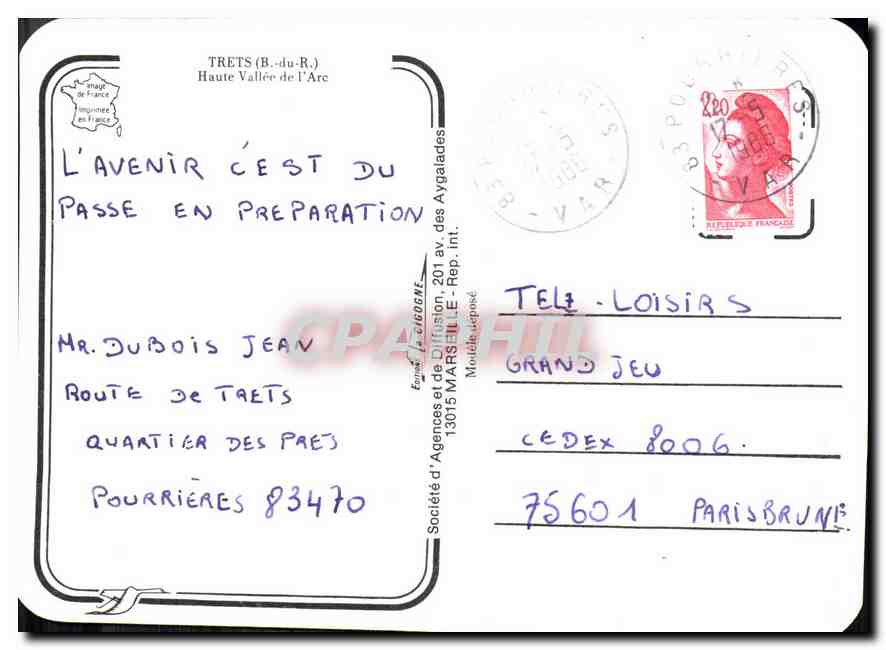 TRETS (B.-du-R.)
Haute Vallée de l'Arc
image
de France
Imprimée
en France
L'AVENIR C'EST DU
PASSE EN PREPARATION
MR. DUBOIS JEAN
ROUTE De TRETS
QUARTIER DES PRES
POURRIÈRES 83470
Editions La CIGOGNE
Société d'Agences et de Diffusion, 201 av. des Aygalades
13015 MARSEILLE - Rep. int.
Modèle déposé
83 POURRIERES
17 - 5
1986
- VAR -
83 POURRIERES
17 - 5
1986
- VAR -
2,20
REPUBLIQUE FRANÇAISE
TELE 7 - LOISIRS
GRAND JEU
CEDEX 8006.
75601 PARISBRUNE
CPARHIL